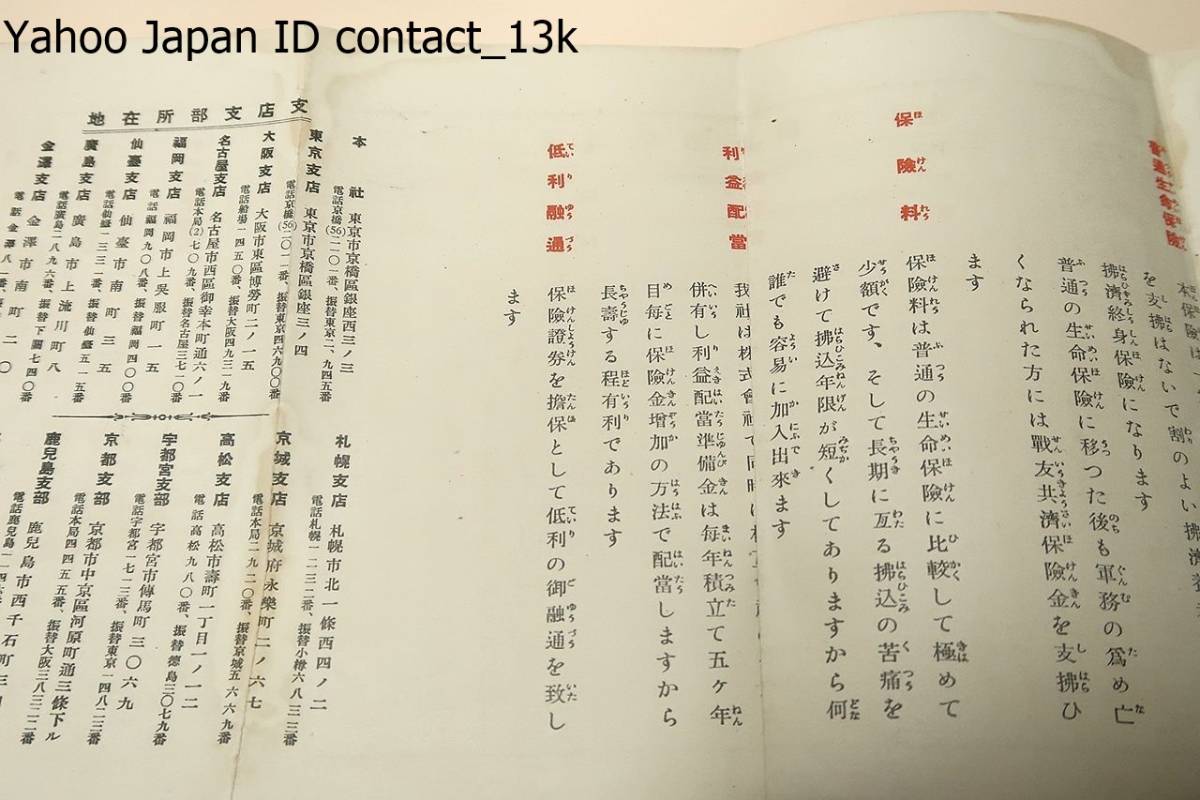 Yahoo Japan ID contact_13k
本保險は
を支拂はないで割のよい拂濟
拂濟終身保險になります
普通の生命保險に移つた後も軍務の爲め亡
くなられた方には戰友共濟保險金を支拂ひ
ます
保險料
保險料は普通の生命保險に比較して極めて
少額です、そして長期に亙る拂込の苦痛を
避けて拂込年限が短くしてありますから何
誰でも容易に加入出來ます
利益配當
我社は株式會社で同時に
併有し利益配當準備金は每年積立て五ヶ年
目每に保險金增加の方法で配當しますから
長壽する程有利であります
低利融通
保險證券を擔保として低利の御融通を致し
ます
支店支部所在地
本社 東京市京橋區銀座西三ノ三
電話京橋(56)二〇一番、振替東京二、九四五番
東京支店 東京市京橋區銀座三ノ四
電話京橋(56)二〇一一番、振替東京四六九〇〇番
大阪支店 大阪市東區博勞町二ノ一五
電話船場一四五〇番、振替大阪四九三一九番
名古屋支店 名古屋市西區御幸本町通六ノ一
電話本局(2)七〇九番、振替名古屋三七一〇番
福岡支店 福岡市上吳服町一五
電話福岡九〇八番、振替福岡四〇〇番
仙臺支店 仙臺市南町三五
電話仙臺一三三一番、振替仙臺五一五番
廣島支店 廣島市上流川町八
電話廣島二八九六番、振替下關七四〇番
金澤支店 金澤市南町二〇
電話金澤八一番
札幌支店 札幌市北一條西四ノ二
電話札幌一二三二番、振替小樽六八三三番
京城支店 京城府永樂町二ノ六七
電話本局二九二〇番、振替京城五六六九番
高松支店 高松市壽町一丁目一ノ一二
電話高松九八〇番、振替德島三〇七九番
宇都宮支部 宇都宮市傳馬町三〇六九
電話宇都宮一七二三番、振替東京一四八二三番
京都支部 京都市中京區河原町通三條下ル
電話本局四四五五番、振替大阪三八三二二番
鹿兒島支部 鹿兒島市西千石町三
電話鹿兒島一